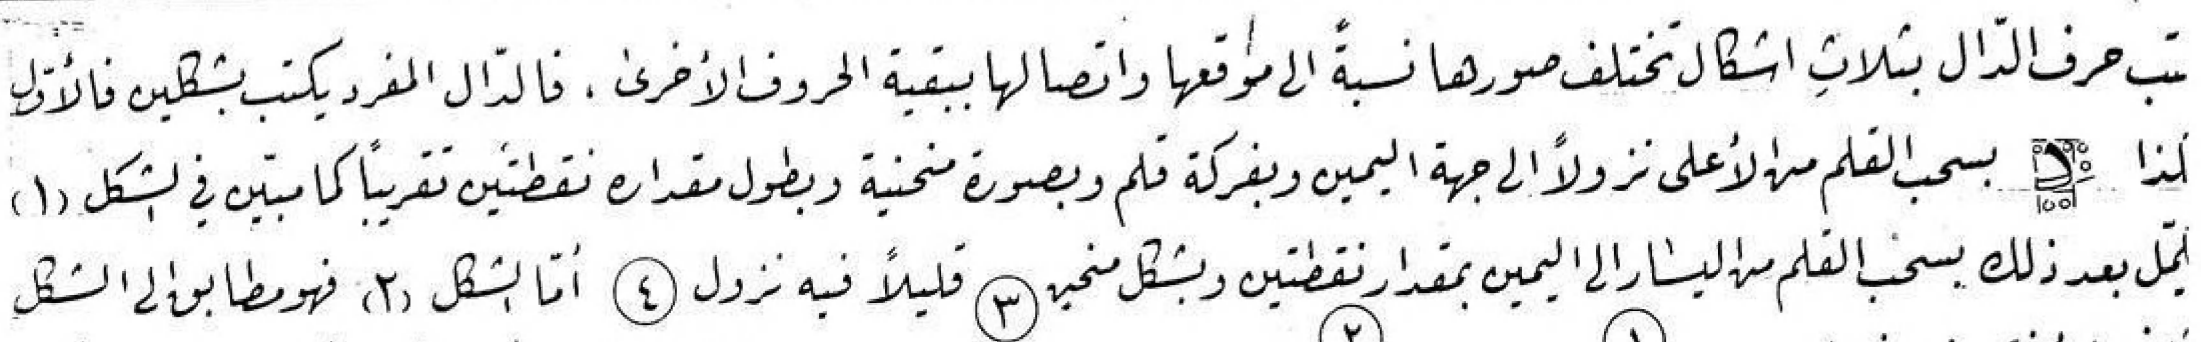 تب حرف الدّال بثلاثِ اشكال تختلف صورها نسبةً الى مواقعها واتصالها ببقية الحروف الأخرى . فالدّال المفرد يكتب بشكلين فالأوّل
كذا بسحب القلم من الأعلى نزولاً الى جهة اليمين وبفركة قلم وبصورة منحنية وبطول مقداره نقطتين تقريباً كما مبيّن في الشكل (١)
يكمّل بعد ذلك بسحب القلم من اليسار الى اليمين بمقدار نقطتين وبشكل منحنٍ ٣ قليلاً فيه نزول ٤ أمّا الشكل (٢) فهو مطابق الى الشكل
١ ٢